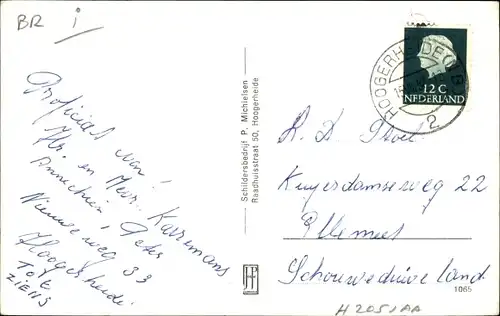 BR i
Proficiat van!
Hr. en Mevr. Karremans
Annechien, Peter
Nieuweweg 33
Hoogerheide.
Tot
ZIENS
Schildersbedrijf P. Michielsen
Raadhuisstraat 50, Hoogerheide
JHP
HOOGERHEIDE (N B)
2
12 C
NEDERLAND
K. D.
Kuyerdamseweg 22
Ellemeet
Schouwenduiveland
1065
H2051AA